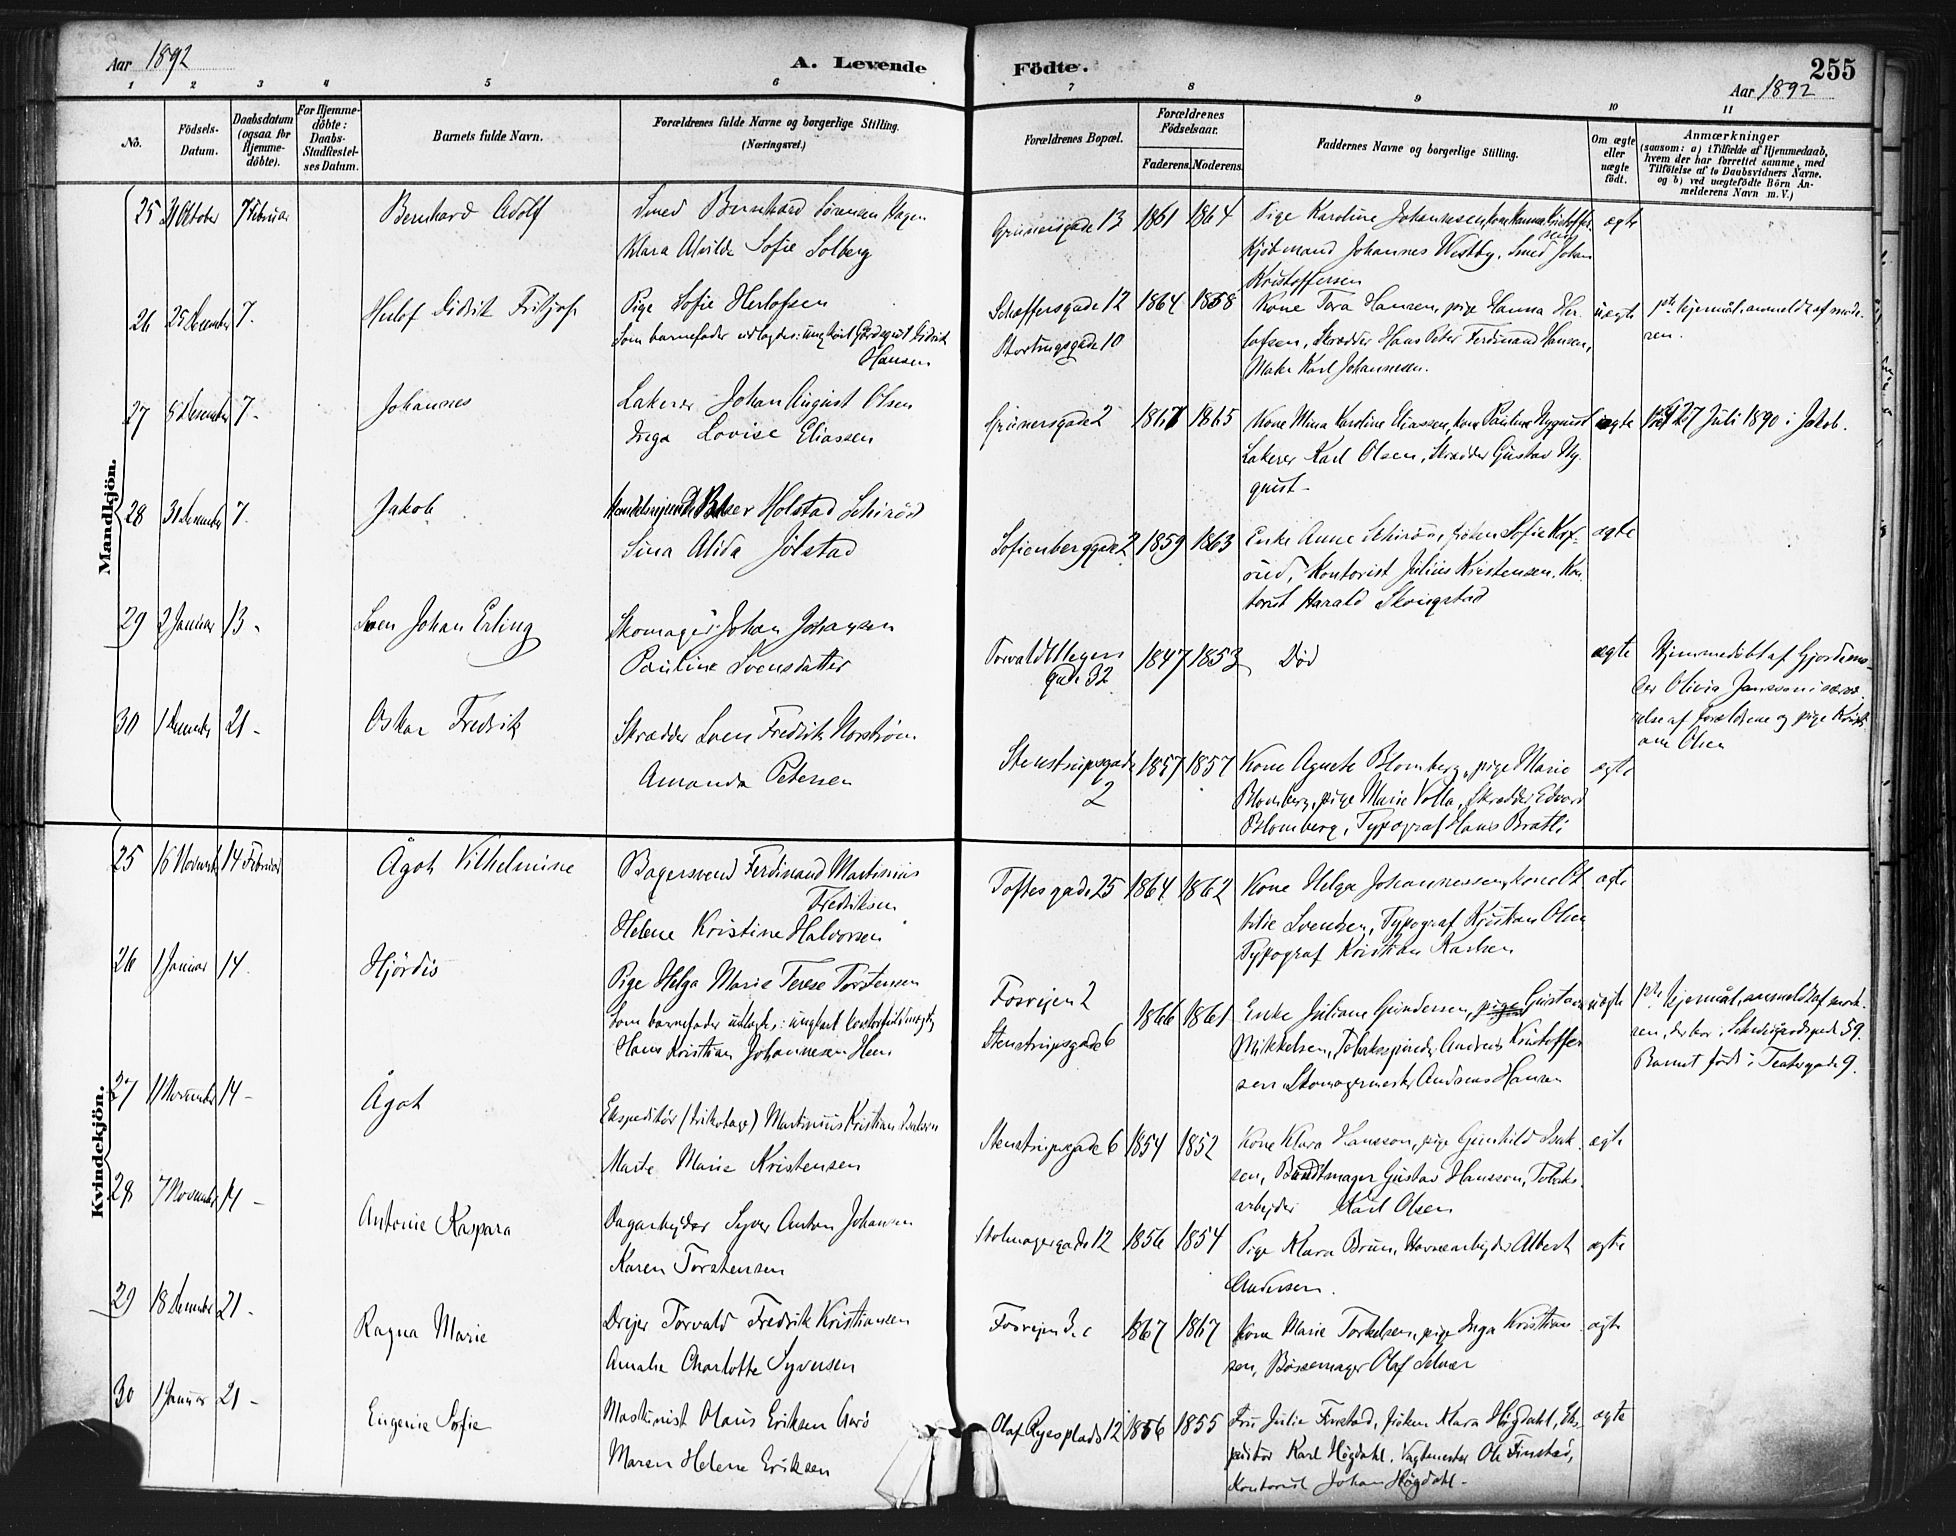 Aar 1892
A. Levende
Födte.
255
Aar 1892
1 2 3 4 5 6 7 8 9 10 11
No.
Födsels-Datum.
Daabsdatum (ogsaa for Hjemmedöbte).
For Hjemmedöbte: Daabs-Stadfæstelses Datum.
Barnets fulde Navn.
Forældrenes fulde Navne og borgerlige Stilling. (Næringsvei.)
Forældrenes Bopæl.
Forældrenes Födselsaar.
Faderens. Moderens.
Faddernes Navne og borgerlige Stilling.
Om ægte eller uægte födt.
Anmærkninger
(saasom: a) i Tilfælde af Hjemmedaab, hvem der har forrettet samme, med Tilföielse af to Daabsvidners Navne. og b) ved uægtefödte Börn Anmelderens Navn m. V.)
Mandkjön.
25 31 Oktober 7 Februar Bernhard Adolf
Smed Bernhard Sörensen Hagen
Klara Alvilde Sofie Solberg
Grünersgade 13 1861 1864
Pige Karoline Johannesen, kone Hanna Kristoffersen
Kjöbmand Johannes Westby, Smed Johan
Kristoffersen
ægte
26 25 December 7. Herlof Didrik Fritjof
Pige Sofie Herlofsen
Som barnefader udlagdes: ungkarl Didrik
Hansen
Schæffersgade 12
Stortingsgade 10
1864 1858
Kone Tora Hansen, pige Hanna Her-
lofsen, Skrædder Hans Peter Ferdinand Hansen,
Maler Karl Johannesen.
uægte
1ste Lejermål, anmeldt af mode-
ren.
27 5 December 7. Johannes
Lakerer Johan August Olsen
Inga Lovise Eliassen
Grünersgade 2 1867 1865
Kone Mina Karoline Eliassen, kone Pauline Nyquist
Lakerer Karl Olsen, Skrædder Gustav Ny-
quist.
ægte
27 Juli 1890 i Jakob.
28 31 December 7. Jakob
Holstad Schiröd
Sina Alida Jölstad
Sofienberggade 2 1859 1863
Enke Anne Schiröd, fröken Sofie
Kontorist Julius Kristensen, Kon-
torist Harald Skougstad
ægte
29 2 Januar 13. Sven Johan Erling
Skomager Johan Johansen
Pauline Svensdatter
Torvald Meyers
gade 32
1847 1853
Död
ægte
Hjemmedöbt af Gjordemo-
der Olivia Janssen i nærvæ-
relse af forældrene og pige Krist-
ane Olsen
30 1 December 21. Oskar Fredrik
Skrædder Sven Fredrik Norström
Amanda Petersen
Stenstrupsgade
2
1857 1857
Kone Agnete Blomberg, pige Marie
Blomberg, pige Marie Volla, Skrædder Edvard
Blomberg, Typograf Hans Bratli
ægte
Kvindekjön.
25 16 November 14 Februar Ågot Vilhelmine
Bagersvend Ferdinand Martinius
Fredriksen
Helene Kristine Halvorsen
Toftesgade 25 1864 1862
Kone Helga Johannessen, kone Ot-
tilie Svendsen, Typograf Kristian Olsen
Typograf Kristian Karlsen
ægte
26 1 Januar 14. Hjördis
Pige Helga Marie Terese Torstensen
Som barnefader udlagdes: ungkarl
Claus Kristian Johannesen Hem
Fosvejen 2
Stenstrupsgade 6
1866 1861
Enke Juliane Gundersen, pige Gustava
Mikkelsen, Tobakspinder Andreas Kristoffer-
sen, Skomagermester Andreas Hansen
uægte
1ste Lejermål, anmeldt af mode-
ren, der bor i Schweigaardsgade 59.
Barnet födt i Teatergade 9.
27 11 November 14. Ågot
Ekspeditör (trikotage) Martinius Kristian Isaksen
Marte Marie Kristensen
Stenstrupsgade 6 1854 1852
Kone Klara Hansson, pige Gunhild Isak-
sen, Bundtmager Gustav Hansson, Tobaks-
arbejder Karl Olsen
ægte
28 7 November 14. Antonie Kaspara
Dagarbejder Syver Anton Johansen
Karen Torstensen
Stolmagergade 12 1856 1854
Pige Klara Brun, Havnearbejder Albert
Andersen.
ægte
29 18 December 21. Ragna Marie
Drejer Torvald Fredrik Kristiansen
Amalie Charlotte Syversen
Fosvejen 3 c 1867 1867
Kone Marie Torkelsen, pige Inga Kristian-
sen, Bössemager Olaf Selmer
ægte
30 1 Januar 21. Eugenie Sofie
Maskinist Olaus Eriksen Aarö
Maren Helene Eriksen
Olaf Ryes plads 12 1856 1855
Fru Julie Finstad, fröken Klara Högdahl, Eks-
peditör Karl Högdahl, Vagtmester Ole Finstad,
Kontorist Johan Högdahl.
ægte